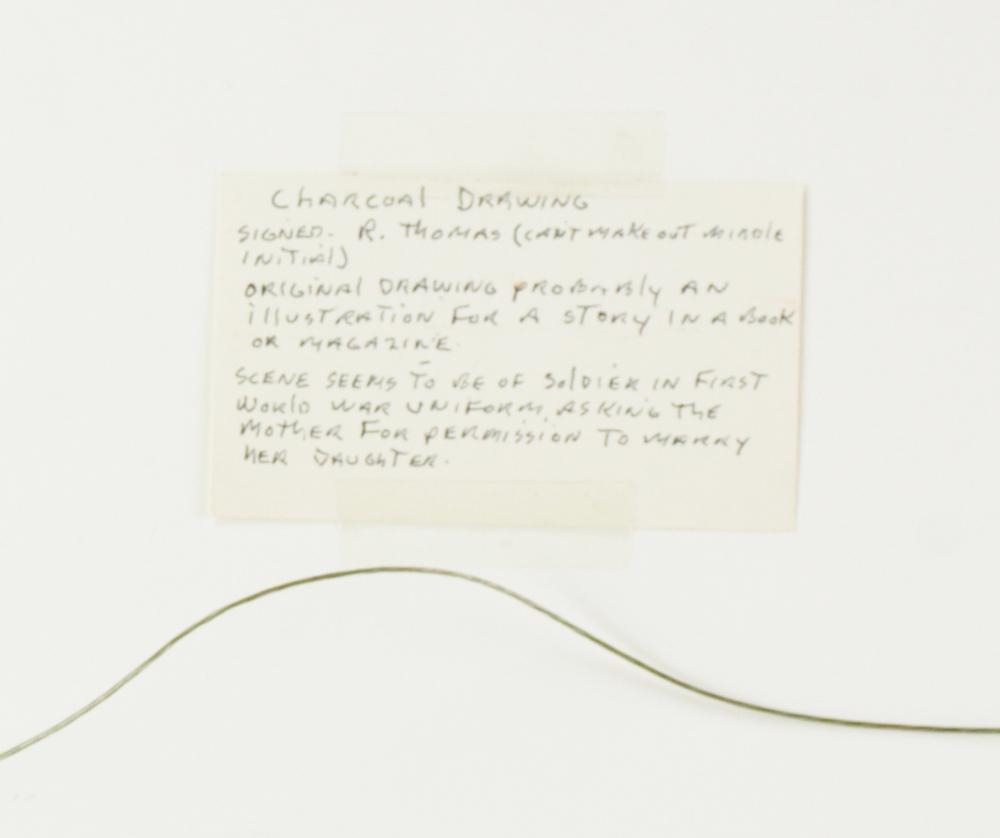 CHARCOAL DRAWING
SIGNED. R. THOMAS (CAN'T MAKE OUT MIDDLE
INITIAL)
ORIGINAL DRAWING PROBABLY AN
ILLUSTRATION FOR A STORY IN A BOOK
OR MAGAZINE.
SCENE SEEMS TO BE OF SOLDIER IN FIRST
WORLD WAR UNIFORM, ASKING THE
MOTHER FOR PERMISSION TO MARRY
HER DAUGHTER.